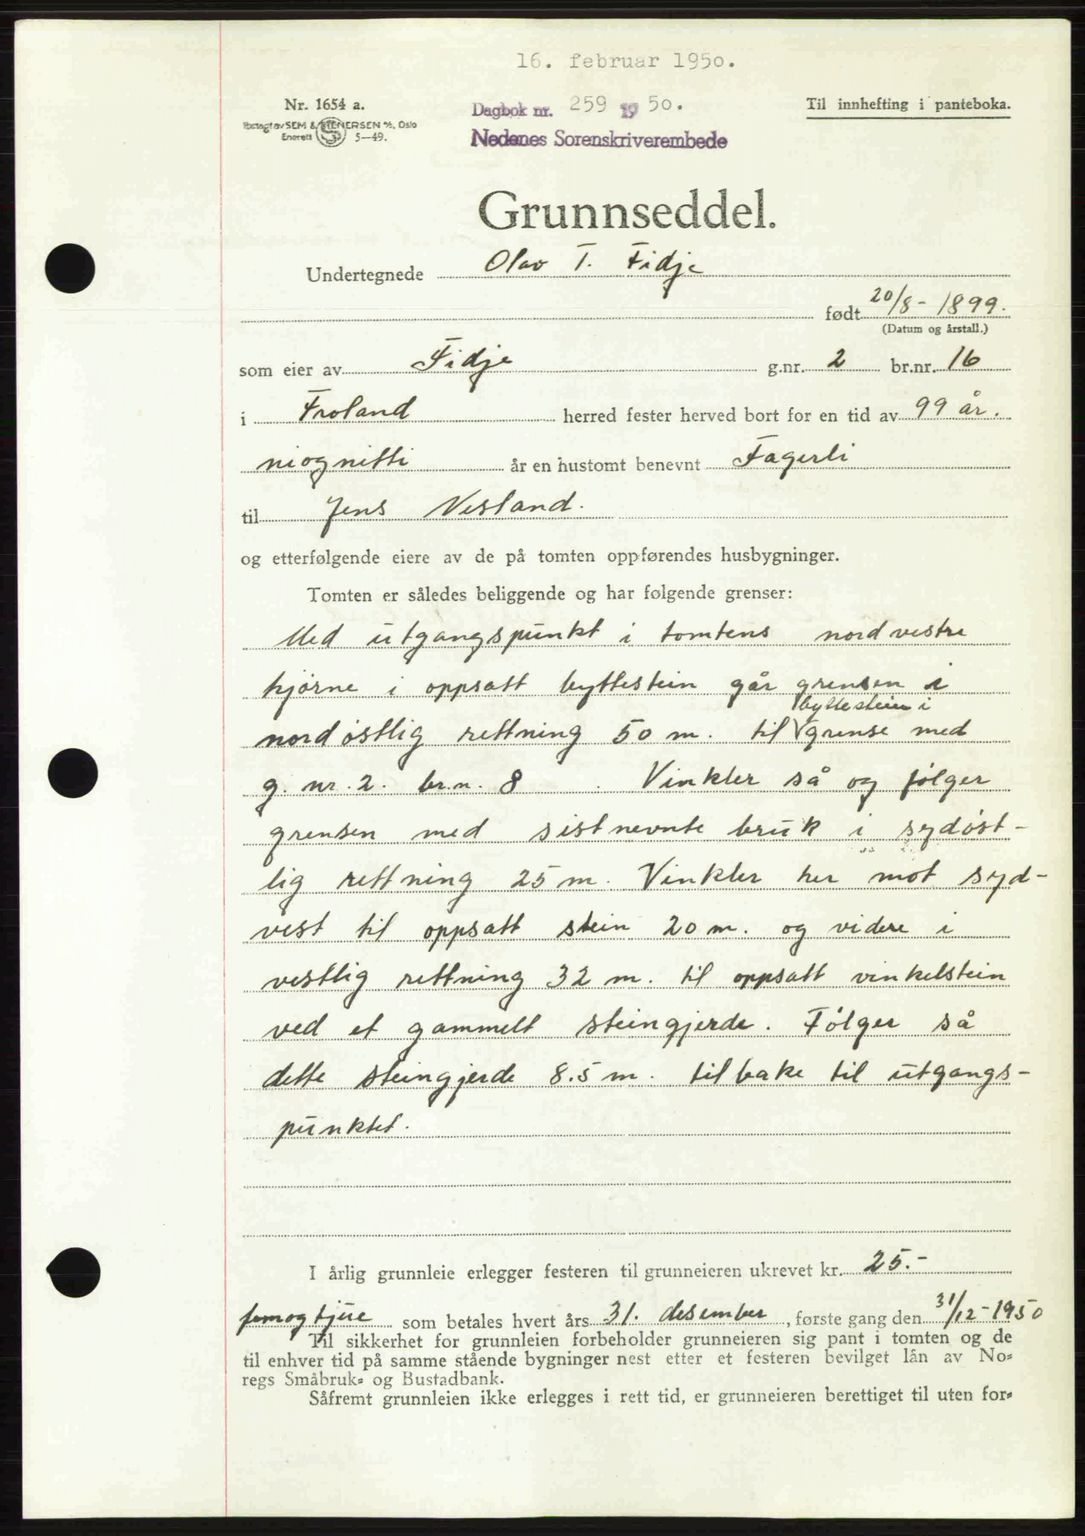 16. februar 1950.
Nr. 1654 a.
Dagbok nr. 259 19 50.
Til innhefting i panteboka.
SEM & STENERSEN A/S, Oslo
Enerett 5—49.
Nedenes Sorenskriverembede
Grunnseddel.
Undertegnede Olav T. Fidje
født 20/8 - 1899.
(Datum og årstall.)
som eier av Fidje g.nr. 2 br.nr. 16
i Froland herred fester herved bort for en tid av 99 år.
niognitti år en hustomt benevnt Fagerli
til Jens Vesland.
og etterfølgende eiere av de på tomten oppførendes husbygninger.
Tomten er således beliggende og har følgende grenser:
Med utgangspunkt i tomtens nordvestre
hjørne i oppsatt byttestein går grensen i
byttestein i
nordøstlig rettning 50 m. til V grense med
g. nr. 2. br.n. 8 . Vinkler så og følger
grensen med sistnevnte bruk i sydøst-
lig rettning 25 m. Vinkler her mot syd-
vest til oppsatt stein 20 m. og videre i
vestlig rettning 32 m. til oppsatt vinkelstein
ved et gammelt steingjerde. Følger så
dette steingjerde 8.5 m. tilbake til utgangs-
punktet.
I årlig grunnleie erlegger festeren til grunneieren ukrevet kr. 25.-
femogtjue som betales hvert års 31. desember, første gang den 31/12 - 1950
Til sikkerhet for grunnleien forbeholder grunneieren sig pant i tomten og de
til enhver tid på samme stående bygninger nest etter et festeren bevilget lån av No-
regs Småbruk- og Bustadbank.
Såfremt grunnleien ikke erlegges i rett tid, er grunneieren berettiget til uten for-